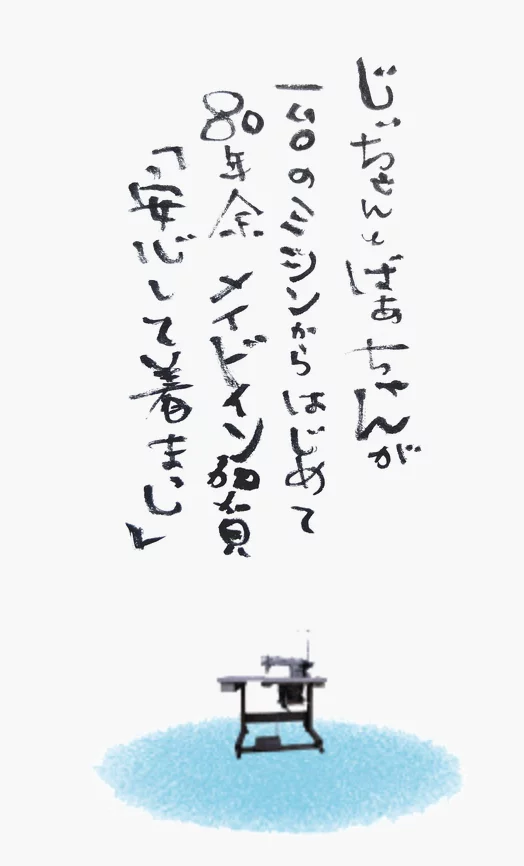 じいちゃんとばあちゃんが
一台のミシンからはじめて
80年余 メイドイン加賀
「安心して着まっし」